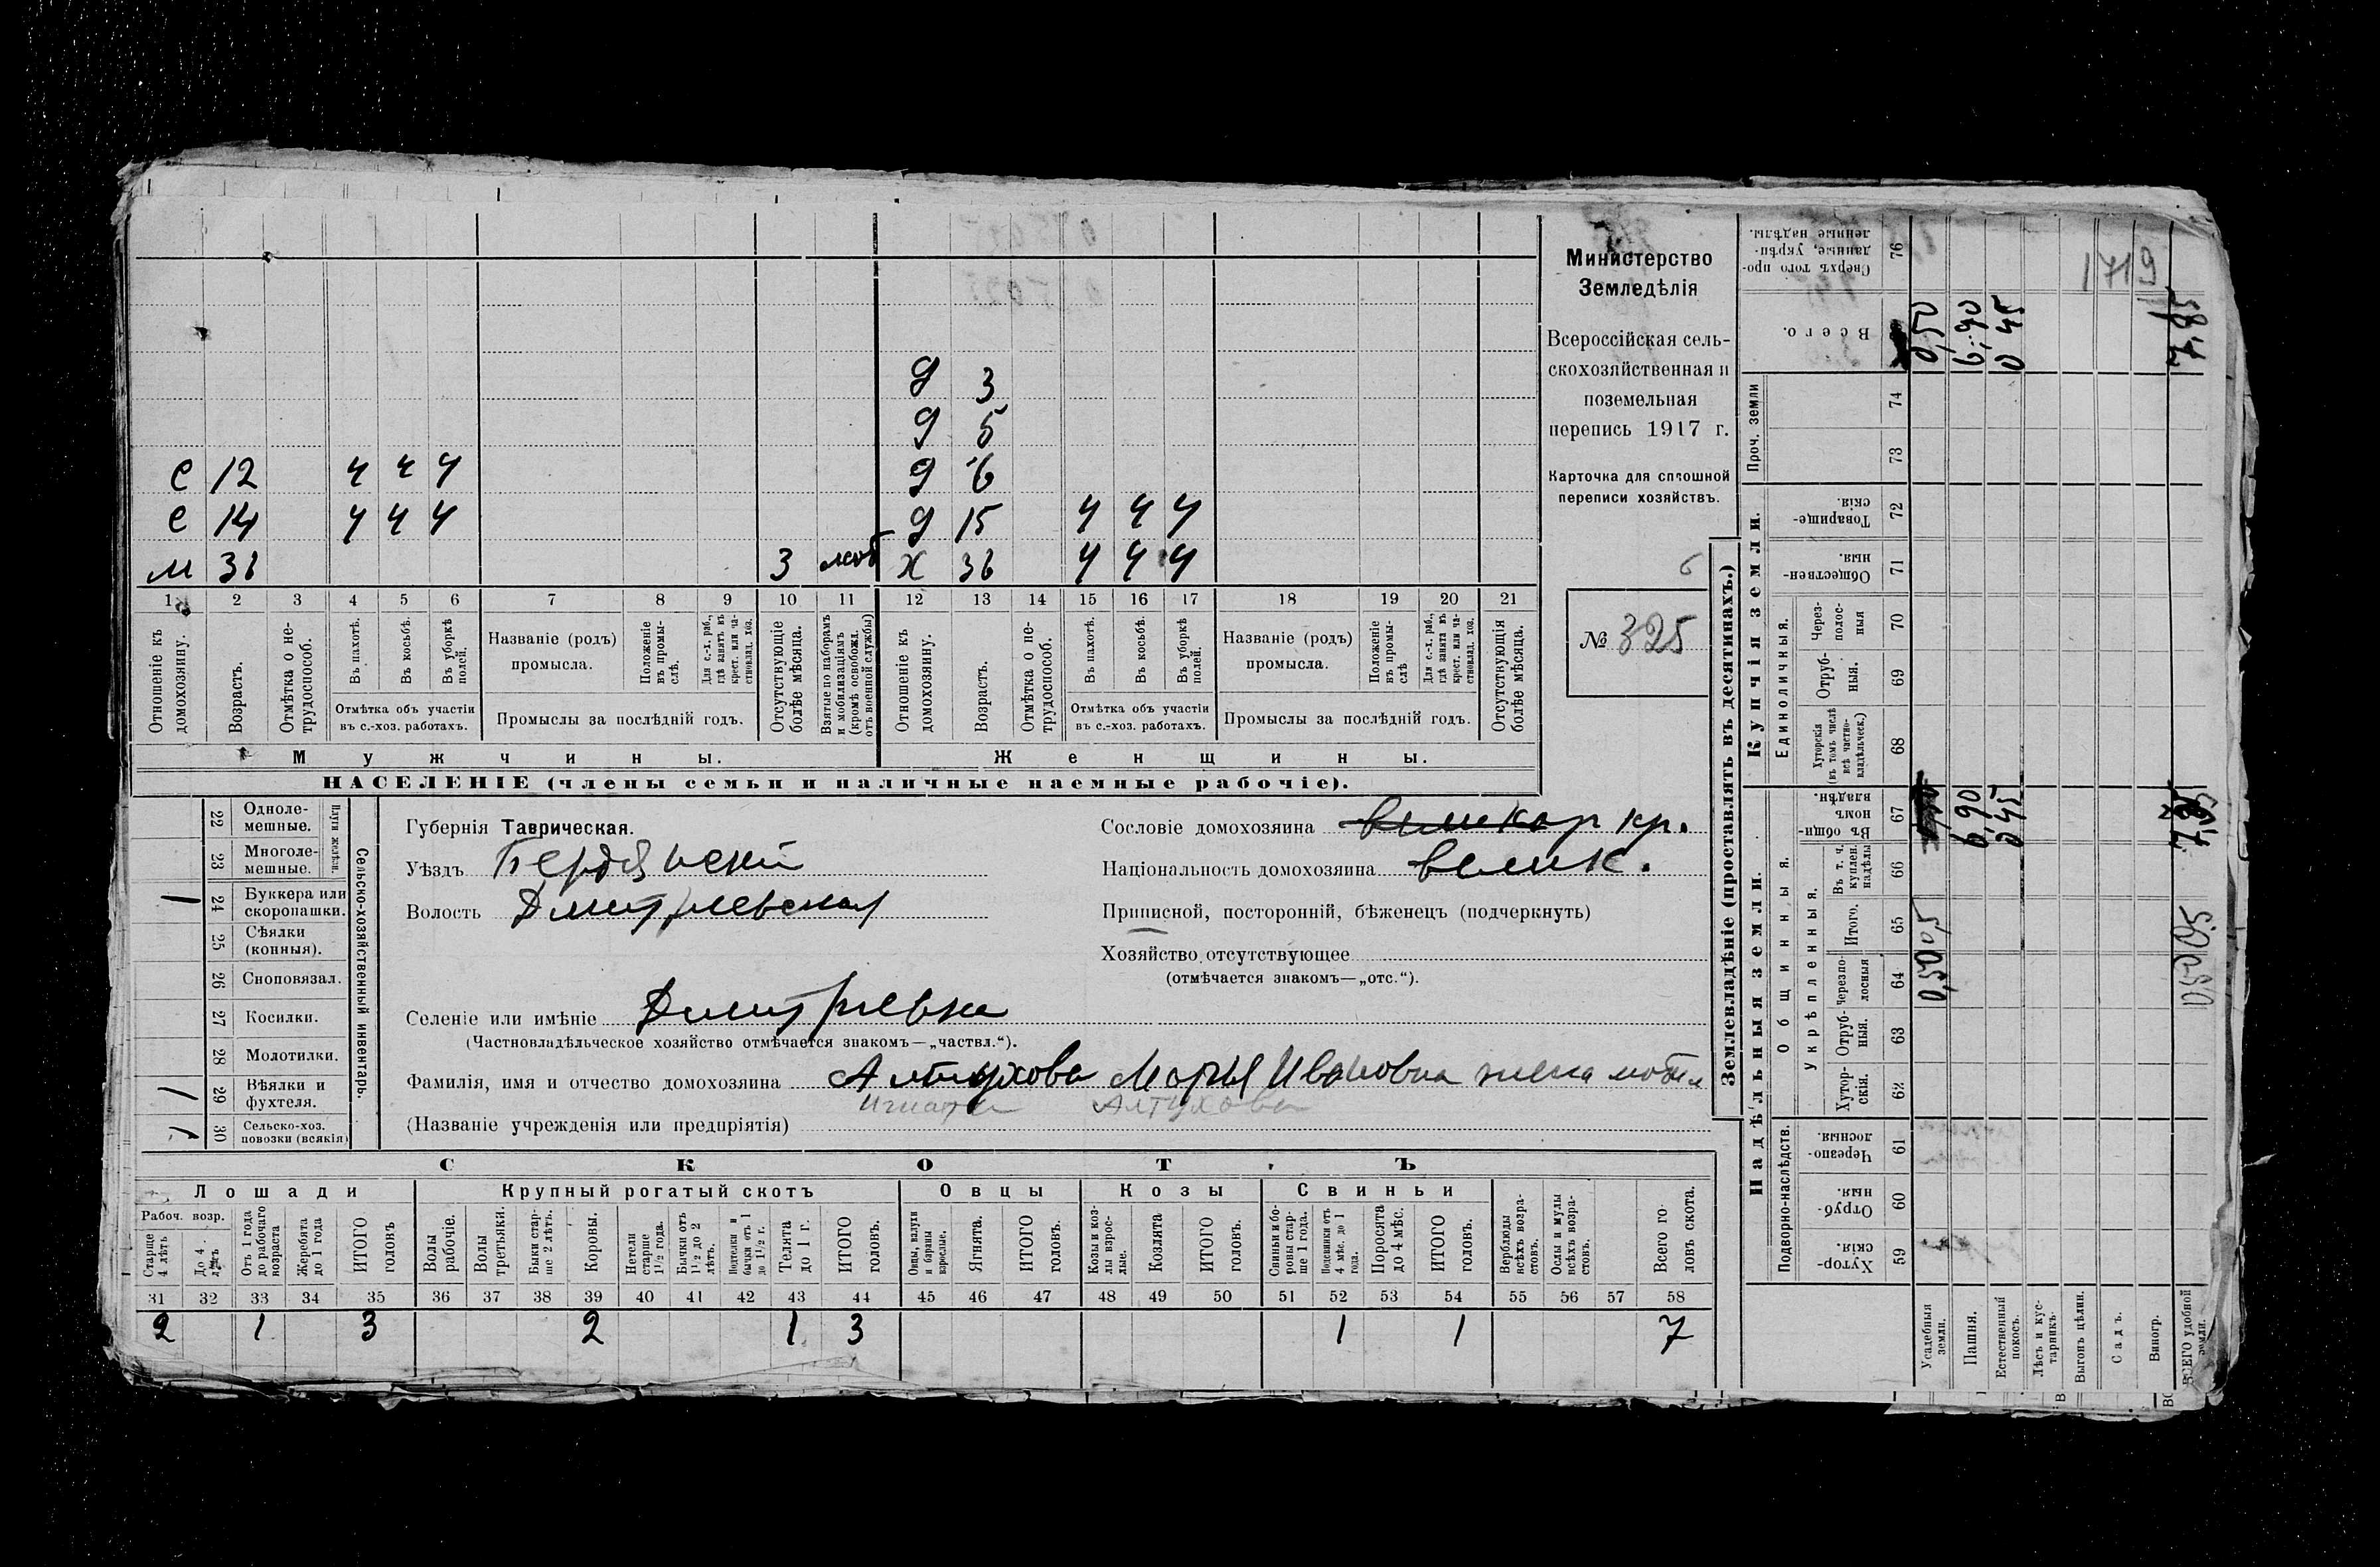 Министерство
Земледѣлія
Всероссійская сель-
скохозяйственная и
поземельная
перепись 1917 г.
Карточка для сплошной
переписи хозяйствъ.
6
№ 325
1719
д 3
д 5
с 12 ч ч ч д 6
с 14 ч ч ч д 15 ч ч ч
м 36 3 моб х 36 ч ч ч
1 2 3 4 5 6 7 8 9 10 11 12 13 14 15 16 17 18 19 20 21
Отношеніе къ домохозяину.
Возрастъ.
Отмѣтка о не-трудоспособ.
Въ пахотѣ.
Въ косьбѣ.
Въ уборкѣ полей.
Отмѣтка объ участіи
въ с.-хоз. работахъ.
Названіе (родъ)
промысла.
Положеніе въ промы-слѣ.
Для с.-х. раб., гдѣ занятъ въ крест. или ча-стновлад. хоз.
Промыслы за послѣдній годъ.
Отсутствующіе болѣе мѣсяца.
Взятые по наборамъ и мобилизаціямъ (кромѣ освобожд. отъ военной службы)
Отношеніе къ домохозяину.
Возрастъ.
Отмѣтка о не-трудоспособ.
Въ пахотѣ.
Въ косьбѣ.
Въ уборкѣ полей.
Отмѣтка объ участіи
въ с.-хоз. работахъ.
Названіе (родъ)
промысла.
Положеніе въ промы-слѣ
Для с.-х. раб., гдѣ занята въ крест. или ча-стновлад. хоз.
Промыслы за послѣдній годъ.
Отсутствующія болѣе мѣсяца.
Мужчины. Женщины.
НАСЕЛЕНІЕ (члены семьи и наличные наемные рабочіе).
Сельско-хозяйственный инвентарь.
Плуги желѣз.
22 Одноле-мешные.
23 Многоле-мешные.
1 24 Буккера или скоропашки.
25 Сѣялки (конныя).
26 Сноповязал.
27 Косилки.
28 Молотилки.
1 29 Вѣялки и фухтеля.
1 30 Сельско-хоз. повозки (всякія)
Губернія Таврическая.
Уѣздъ Бердянскій
Волость Дмитріевская
Сословіе домохозяина великор кр.
Національность домохозяина велик.
Приписной, посторонній, бѣженецъ (подчеркнуть)
Хозяйство отсутствующее
(отмѣчается знакомъ—„отс.“).
Селеніе или имѣніе Дмитріевка
(Частновладѣльческое хозяйство отмѣчается знакомъ—„частвл.“).
Фамилія, имя и отчество домохозяина Алтухова Марья Ивановна жена мобил
Алтухова
(Названіе учрежденія или предпріятія)
СКОТЪ
Лошади Крупный рогатый скотъ Овцы Козы Свиньи
Рабоч. возр.
Старше 4 лѣтъ
До 4 лѣтъ
Отъ 1 года до рабочаго возраста
Жеребята до 1 года
ИТОГО головъ
Волы рабочіе.
Волы третьяки.
Быки стар-ше 2 лѣтъ.
Коровы.
Нетели старше 1½ года.
Бычки отъ 1½ до 2 лѣтъ.
Подтелки и бычки отъ 1 до 1½ г.
Телята до 1 г.
ИТОГО головъ.
Овцы, валухи и бараны взрослые.
Ягнята.
ИТОГО головъ.
Козы и коз-лы взрос-лые.
Козлята
ИТОГО головъ.
Свиньи и бо-ровы стар-ше 1 года.
Подсвинки отъ 4 мѣс. до 1 года.
Поросята до 4 мѣс.
ИТОГО головъ.
Верблюды всѣхъ возра-стовъ.
Ослы и мулы всѣхъ возра-стовъ.
Всего го-ловъ скота.
31 32 33 34 35 36 37 38 39 40 41 42 43 44 45 46 47 48 49 50 51 52 53 54 55 56 57 58
2 1 3 2 1 3 1 1 7
Землевладѣніе (проставлять въ десятинахъ.)
Надѣльныя земли. Купчія земли. Проч. земли
Подворно-наслѣдств.
Общинныя.
Укрѣпленныя.
Единоличныя.
Хутор-скія. 59
Отруб-ныя. 60
Черезпо-лосныя. 61
Хутор-скія. 62
Отруб-ныя. 63
Черезпо-лосныя 64
Итого. 65
Въ т. ч. куплен. надѣлы 66
Въ общи-номъ владѣн. 67
Хуторскія (въ томъ числѣ всѣ частно-владѣльческ.) 68
Отруб-ныя. 69
Через-полос-ныя 70
Обществен-ныя. 71
Товарище-скія. 72
73
74
Всего.
Сверхъ того про-данные, укрѣп-ленные надѣлы. 76
Усадебныя земли. 0,50 0,5 0,50
Пашня. 6,90 6,90
Естественный покосъ. 0 45 0 45
Лѣсъ и кус-тарникъ.
Выгонъ цѣлин.
Садъ.
Виногр.
ВСЕГО удобной земли. 7,85